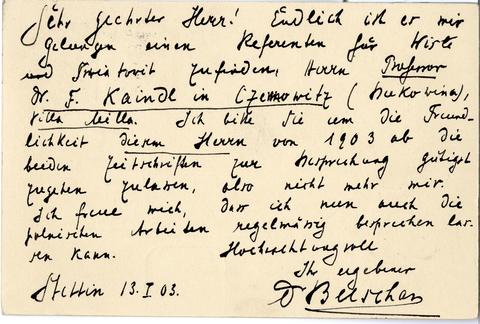 Sehr geehrter Herr! Endlich ist es mir
gelungen einen Referenten für Wisła
und Światowit zu finden, Herrn Professor
Dr. F. Kaindl in Czernowitz (Bukowina),
Villa Milla. Ich bitte Sie um die Freund-
lichkeit diesem Herrn von 1903 ab die
beiden Zeitschriften zur Besprechung gütigst
zugehen zu lassen, also nicht mehr mir.
Ich freue mich, dass ich nun auch die
polnischen Arbeiten regelmässig besprechen las-
sen kann. Hochachtungvoll
Ihr ergebener
Stettin 13. I 03. Dr Buschan